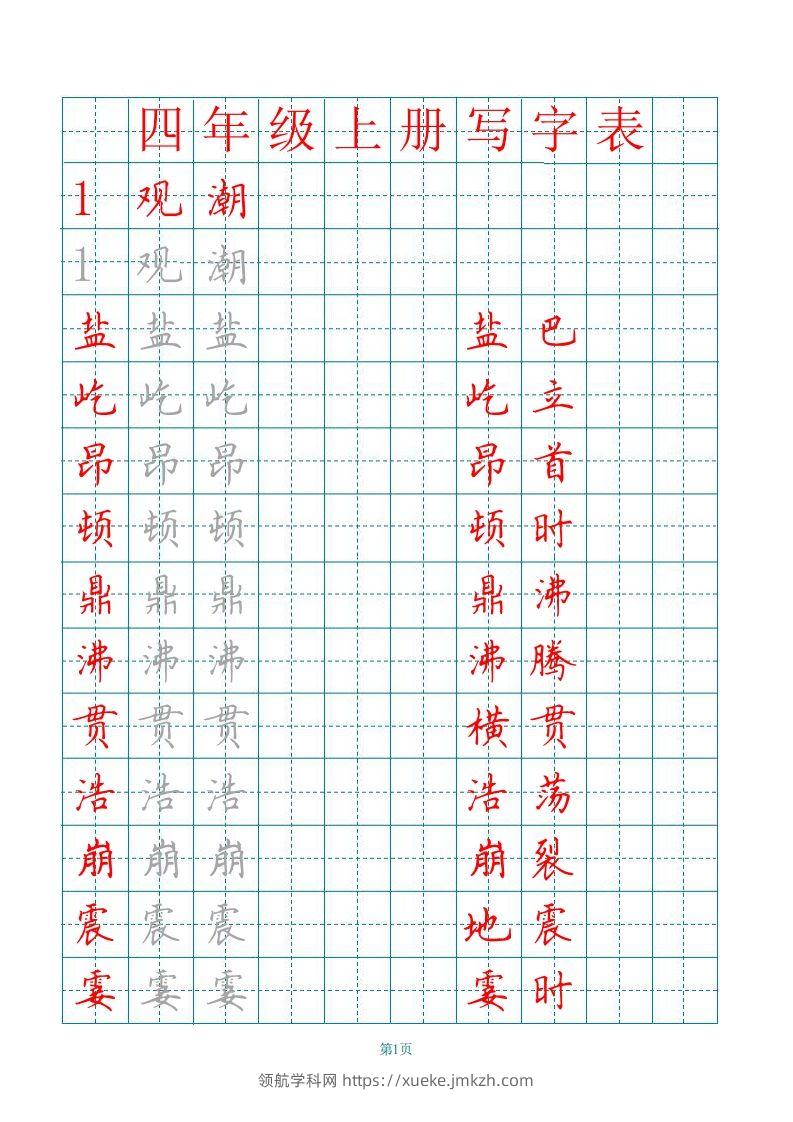 四年级上册写字表
1 观潮
1 观潮
盐 盐 盐 盐巴
屹 屹 屹 屹立
昂 昂 昂 昂首
顿 顿 顿 顿时
鼎 鼎 鼎 鼎沸
沸 沸 沸 沸腾
贯 贯 贯 横贯
浩 浩 浩 浩荡
崩 崩 崩 崩裂
震 震 震 地震
霎 霎 霎 霎时
第1页
领航学科网 https://xueke.jmkzh.com